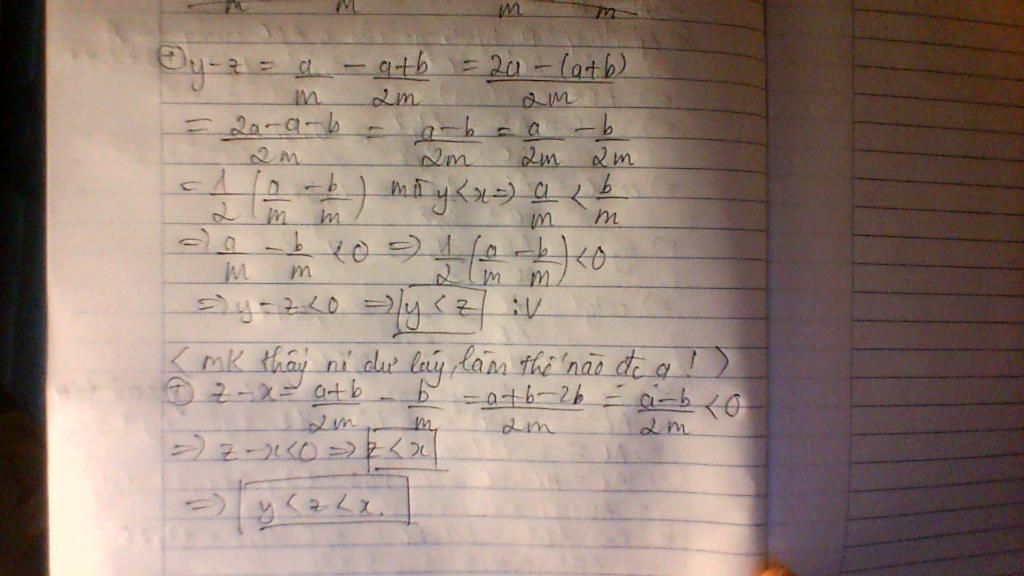 m m m m
⊕ y-z = a/m - a+b/2m = 2a-(a+b)/2m
= 2a-a-b/2m = a-b/2m = a/2m - b/2m
= 1/2 (a/m - b/m) mà y<x => a/m < b/m
=> a/m - b/m <0 => 1/2 (a/m - b/m) <0
=> y-z<0 => y<z :V
< mk thấy ní dư lày, làm thế nào đc ạ! >
⊕ z-x = a+b/2m - b/m = a+b-2b/2m = a-b/2m <0
=> z-x<0 => z<x
=> y<z<x.